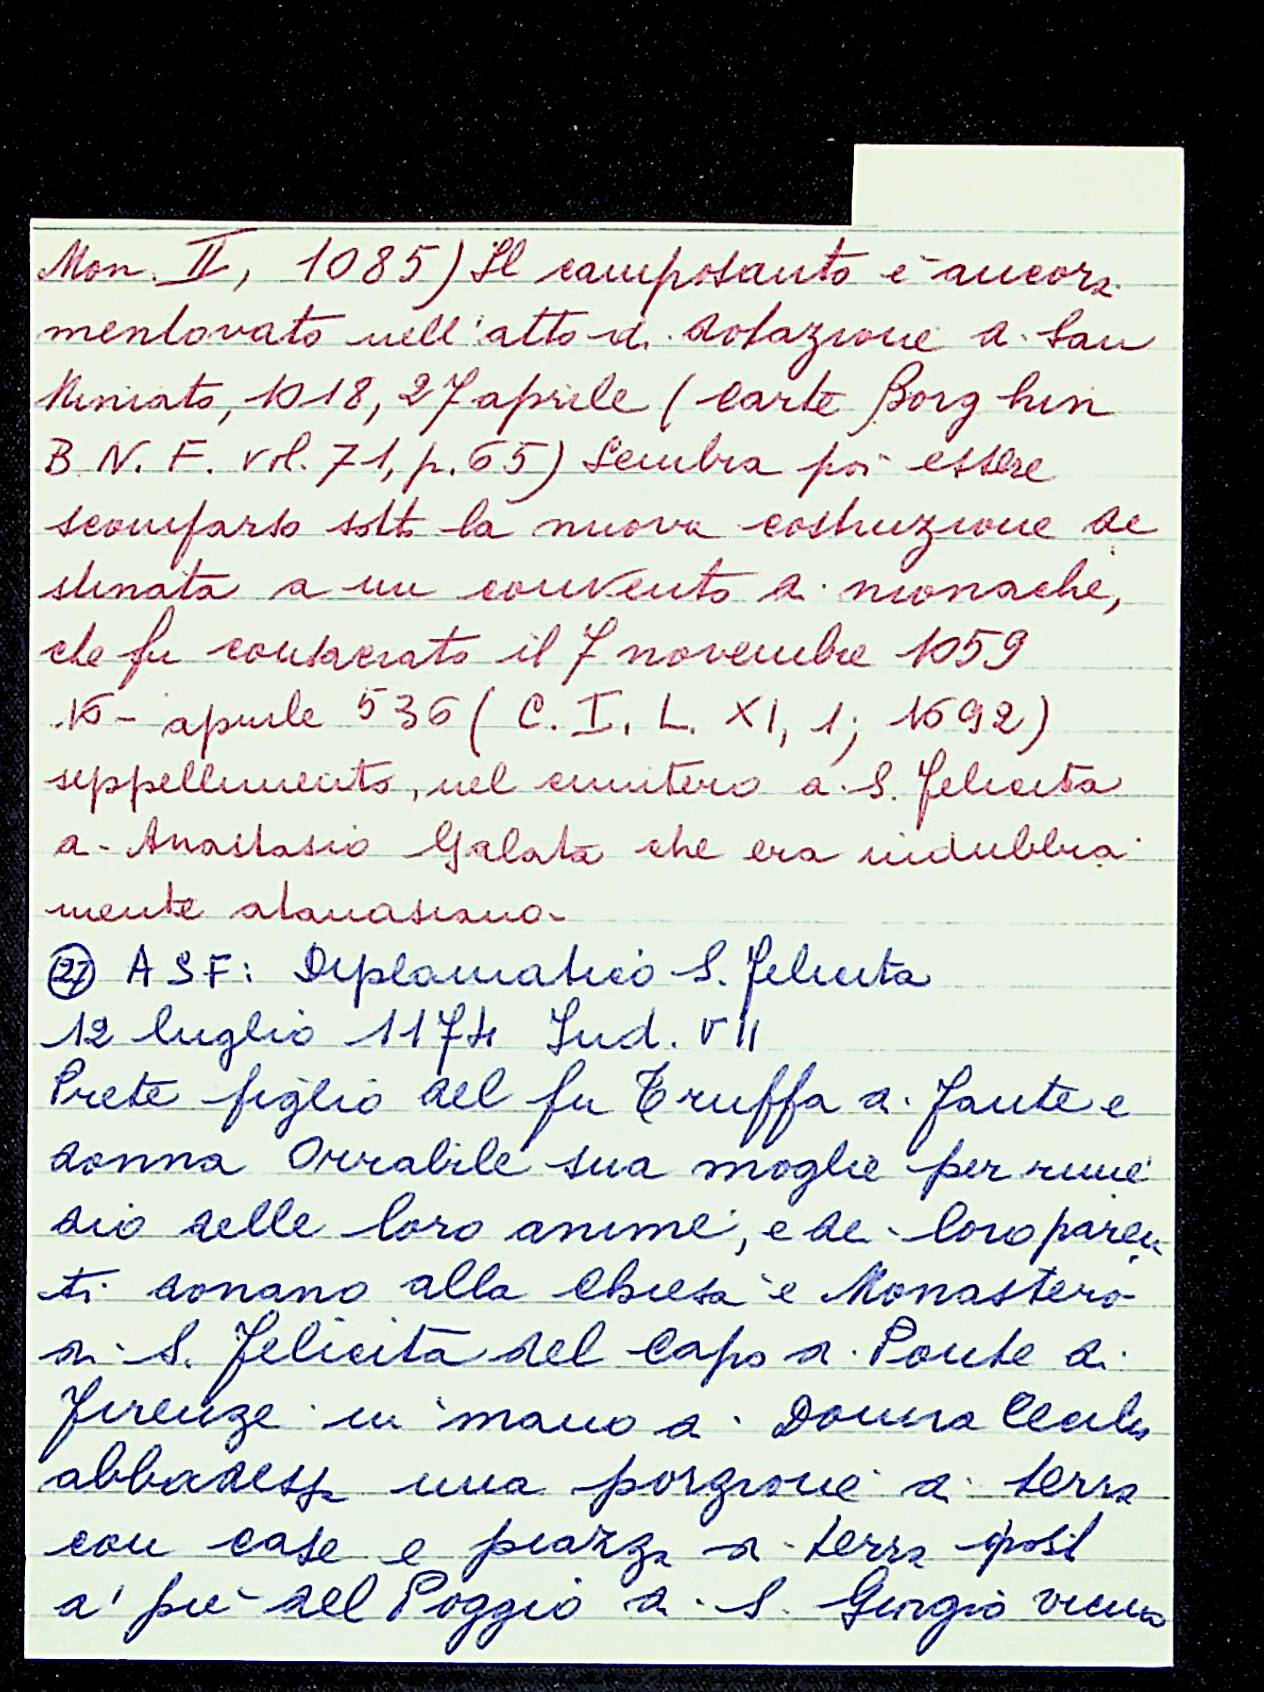 Mon. II, 1085) Il camposanto è ancora
mentovato nell'atto di dotazione di San
Miniato, 1018, 27 aprile (Carte Borghin
B. N. F. vol. 71, p. 65) Sembra poi essere
scomparso sotto la nuova costruzione de
stinata a un convento di monache,
che fu consacrato il 7 novembre 1059
16 - aprile 536 (C. I. L. XI, 1; 1692)
seppellimento, nel cimitero di S. Felicita
di Anastasio Galata che era indubbia
mente atanasiano.
27 ASF: Diplomatico S. Felicita
12 luglio 1174 Ind. VII
Prete figlio del fu Truffa di Fante e
donna Orrabile sua moglie per rime
dio delle loro anime, e dei loro paren
ti donano alla Chiesa e Monastero
di S. Felicita del Capo di Ponte di
Firenze in mano di Donna Cecilia
abbadessa una porzione di terra
con case e piazza di terra post
a' piè del Poggio di S. Giorgio vicino